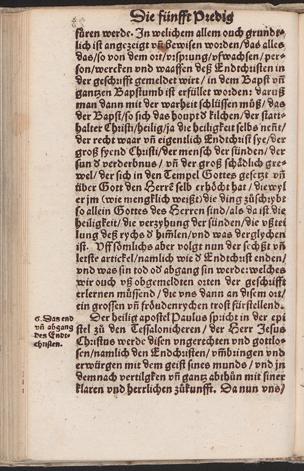 Die fünfft Predig
füren werde. In welichem allem ouch grundt-
lich ist angezeigt vñ bewisen worden / das alles
das / so von dem ort / vrsprung / vfwachsen / per-
son / wercken vnd waaffen deß Endtchristen in
der geschrifft gemeldet wirt / in dem Bapst vñ
gantzen Bapstumb ist erfüllet worden: daruß
man dann mit der warheit schlüssen můß / das
der Bapst / so sich das houpt ď kilchen / der statt-
halter Christi / heilig / ja die heiligkeit selbs neñt /
der recht waar vñ eigentlich Endtchrist sye / der
groß fyend Christi / der mensch der sünden / der
sun ď verderbnus / vñ der groß schådlich gre-
wel / der sich in den Tempel Gottes gesetzt vñ
über Gott den Herrē selb erhöcht hat / diewyl
er jm (wie mengklich weißt) die ding zůschrybt
so allein Gottes des Herren sind / als da ist die
heiligkeit / die verzyhung der sünden / die vßtei
lung deß rychs ď himlen / vnd was derglychen
ist. Vff sömlichs aber volgt nun der sechßt vñ
letste artickel / namlich wie ď Endtchrist enden /
vnd was sin tod od' abgang sin werde: welches
wir ouch vß obgemeldten orten der geschrifft
erlernen müssend / die vns dann an disem ort /
ein grossen vñ fröudenrychen trost fürstellend.
6. Das end
vñ abgang
des Endt-
christen.
Der heilig apostel Paulus spricht in der epi
stel zů den Tessalonicheren / der Herr Jesus
Christus werde disen vngerechten vnd gottlo-
sen / namlich den Endtchristen / vmbringen vnd
erwürgen mit dem geist sines munds / vnd jn
demnach vertilgken vñ gantz abthůn mit siner
klaren vnd herrlichen zůkunfft. Da nun vns /